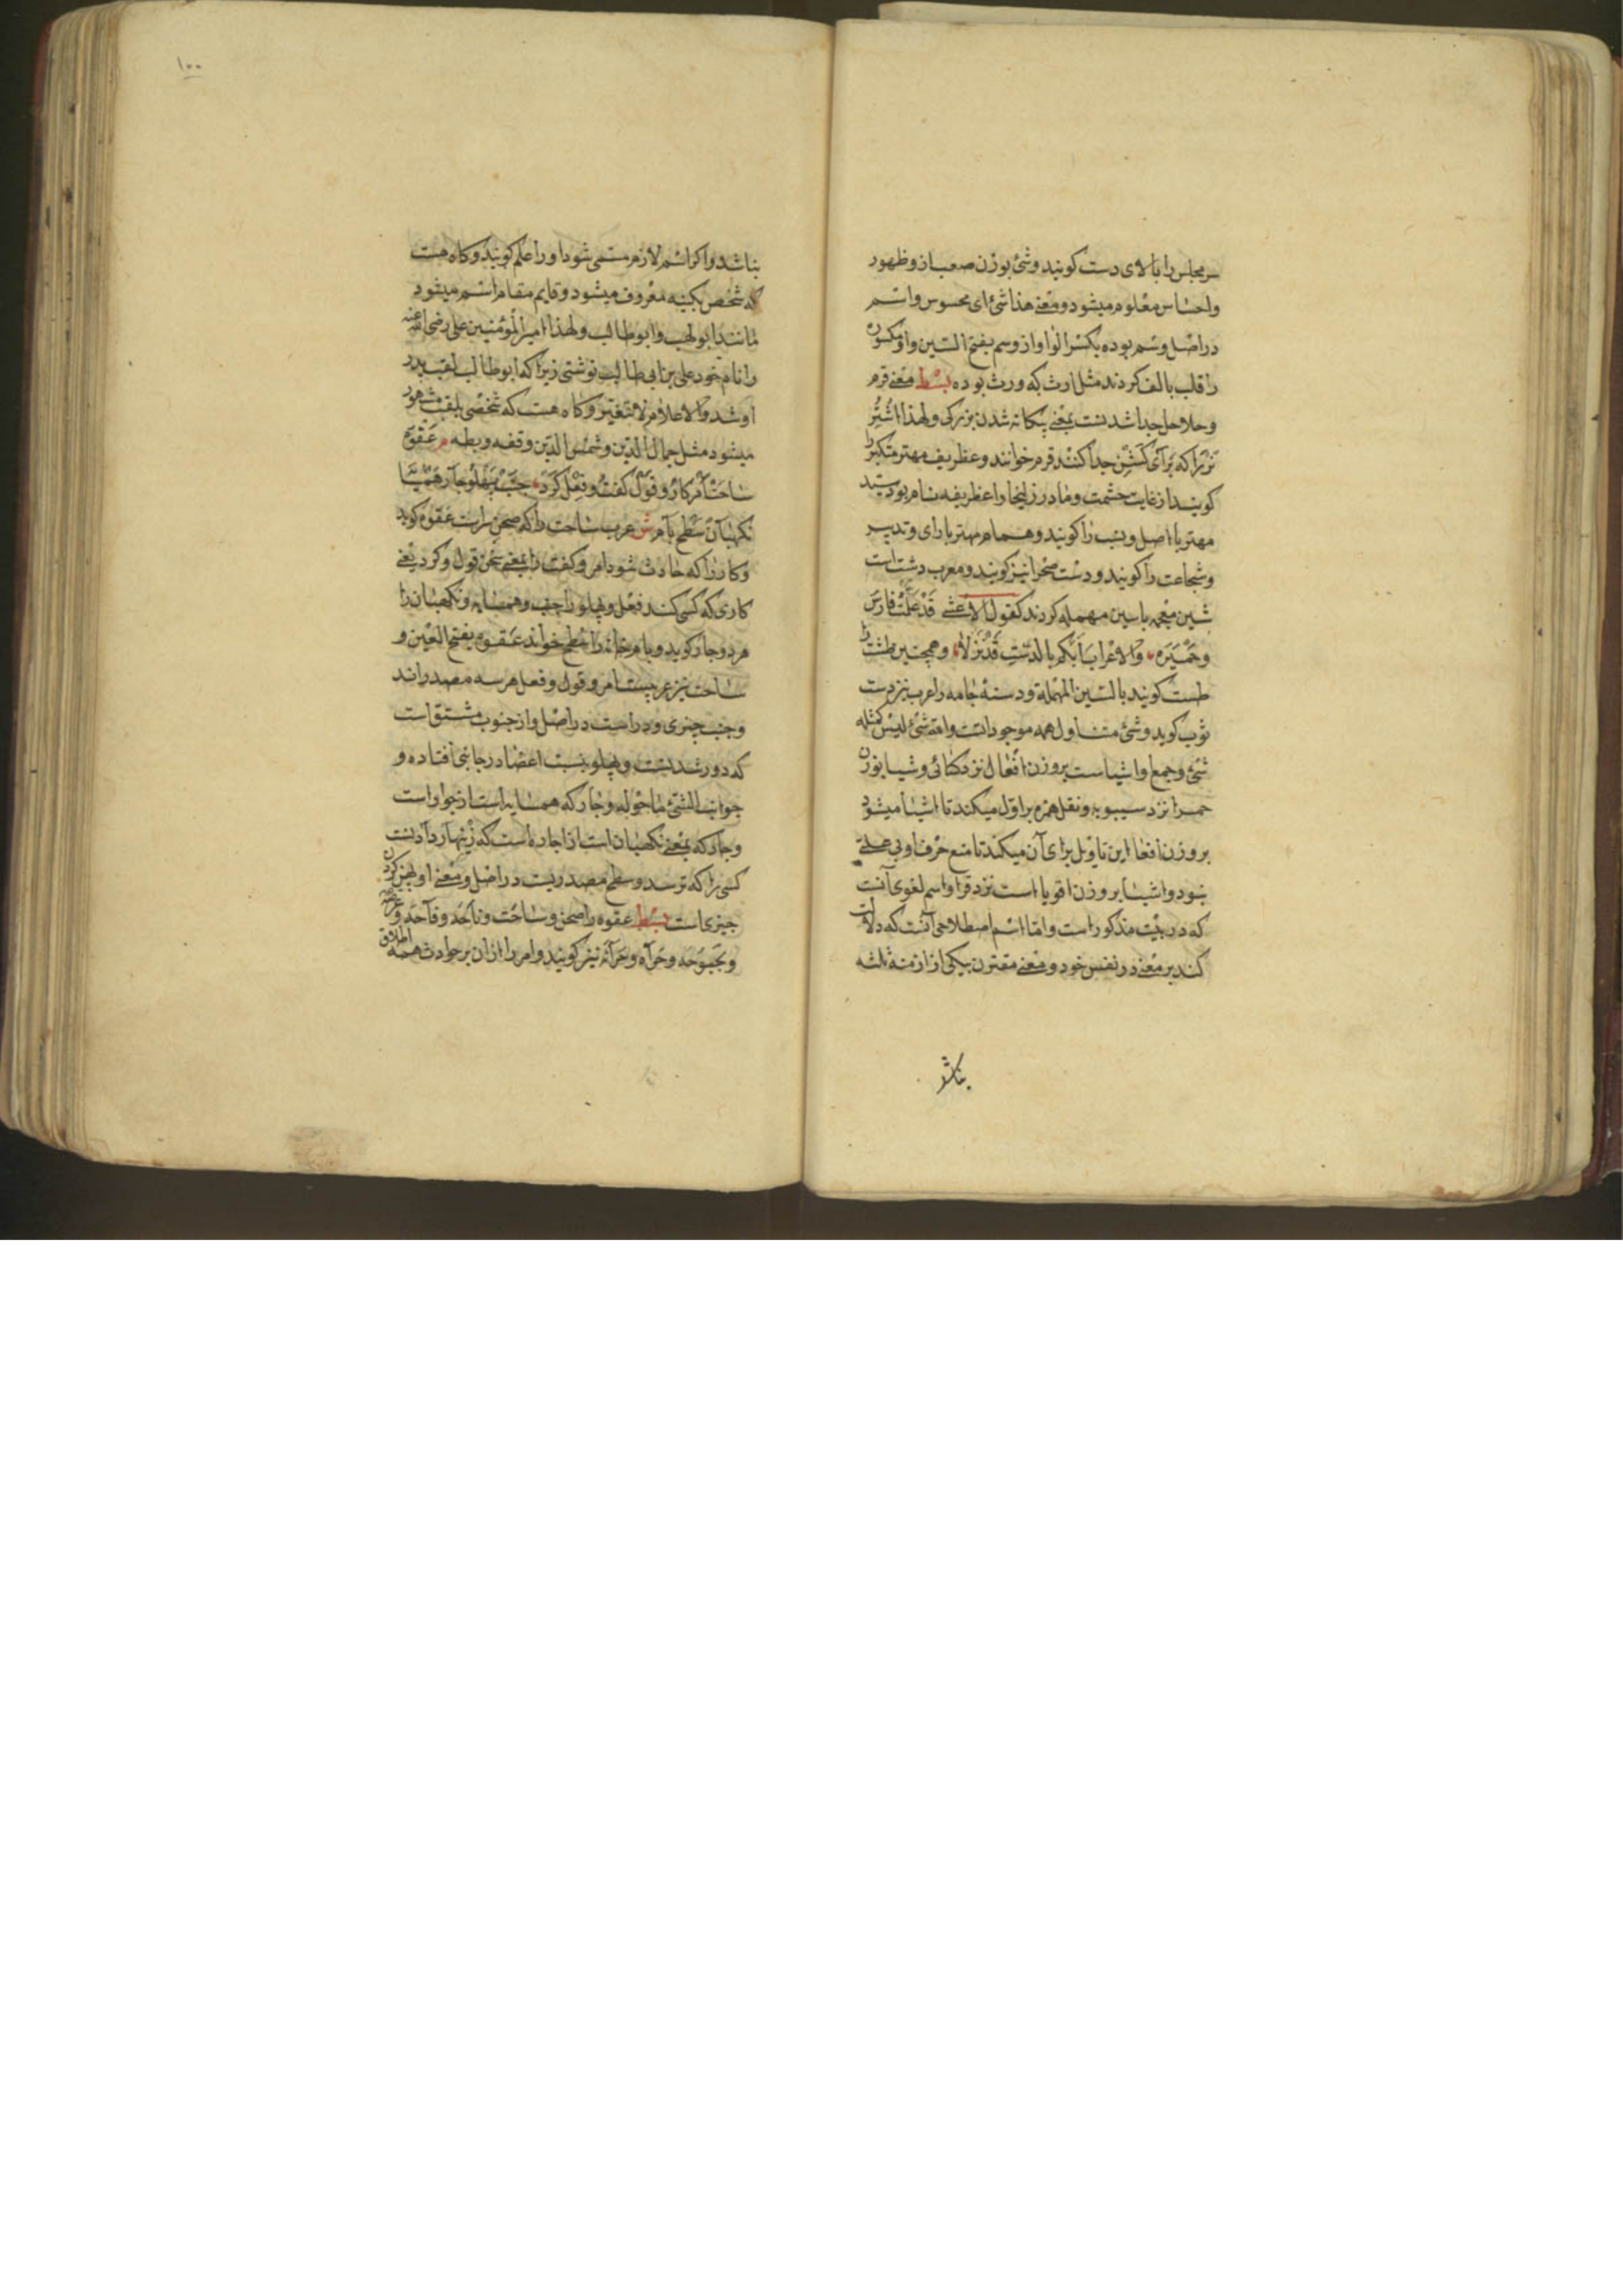 سر مجلس را بالای دست کویند و شئ بوزن صعب از و ظهور
و احساس معلوم میشود و معنے هذا شئ ای محسوس و اسم
در اصل وسم بوده بکسر الواو از وسم بفتح السین واو مکسوره
را قلب بالف کردند مثل ارث که ورث بوده بسط معنے قرم
و حلاحل جدا شدنست بمعنے یکانه شدن بزرکی و لهذا اشتر
نر را که برای کشن جدا کنند قرم خوانند و غطریف مهتر متکبر را
کویند از غایت حشمت و مادر زلیخا را غطریفه نام بود سید
مهتر با اصل و نسب را کویند و همام مهتر با رای و تدبیر
و شجاعت را کویند و دست صحرا نیز کویند و معرب دشت است
شین معجمه با سین مهمله کردند کقول الاعشے قد علمت فارس
و حمیره و الاعراب ایکم بالدست قد نزلا و همچنین طشت را
طست کویند بالسین المهملة و دستهٔ جامه را عرب نیز دست
ثوب کوید و شئ متناول همه موجود است والله شئ لیس کمثله
شئ و جمع او اشیاست بر وزن افعال نزد کسائی و شیا بوزن
حمرا نزد سیبویه و نقل همزه براول میکند تا اشیا میشود
بر وزن افعا این تاویل برای آن میکند تا منع حرف او بی علة
نبود و اشیا بر وزن اقویا است نزد فرا و اسم لغوی آنست
که در بیت مذکور است و اما اسم اصطلاحی آنست که دلالت
کند بر معنے در نفس خود و معنے مقترن بیکی از ازمنهٔ ثلثه
بناشد
۱۰۰
بناشد و اکر اسم لازم مسمی شود او را علم کویند و کاه هست
که شخص بکنیه معروف میشود و قایم مقام اسم میشود
مانند ابو لهب و ابو طالب و لهذا امیر المؤمنین علی رضی الله عنه
را نام خود علی بن ابی طالب نوشتی زیرا که ابو طالب لقب پدر
او شد و الاعلام لا تتغیر و کاه هست که شخصی بلقب مشهور
میشود مثل جمال الدین و شمس الدین و قفه و بطه م عقوه
ساحت امر کار و قول کفت و فعل کرد جنب پهلو جار همسایه
نکهبان سطح بام ش عرب ساحت را که صحن سراست عقوه کوید
و کار را که حادث شود امر و کفت را بمعنے سخن قول و کرد یعنے
کاری که کسی کند فعل و پهلو را جنب و همسایه و نکهبان را
هر دو جار کوید و بام خانه را سطح خواند عقوه بفتح العین و
ساحت نیز عربیست امر و قول و فعل هر سه مصدر اند
و جنب چیزی و در است در اصل و از جنوب مشتق است
که دور شدنست و پهلو بنسبت اعضا در جانبی افتاده و
جوانب الشئ ما حوله و جار که همسایه است از جوار است
و جار که بمعنے نکهبان است از اجاره است که زینهار دادنست
کسی را که ترسد و سطح مصدریست در اصل و معنے او پهن کردن
چیزی است بسط عقوه را صحن و ساحت و ناحه و فاحه و عرصه
و بحبوحه و حراه و حراة نیز کویند و امر را از ان بر حوادث همه اطلاق